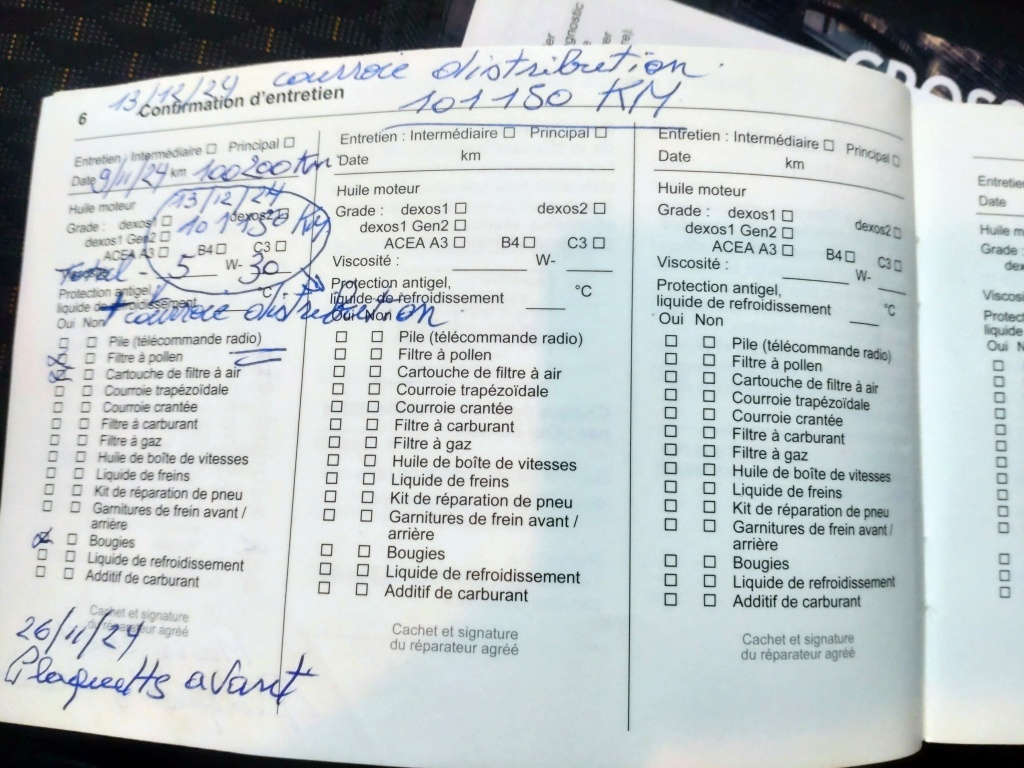 13/12/24 courroie distribution.
101150 KM
6 Confirmation d'entretien
Entretien : Intermédiaire ☐ Principal ☐
Date 9/11/24 km 100200 Km
13/12/24
Huile moteur
101150 Km
Grade : dexos1 ☐ dexos2 ☐
dexos1 Gen2 ☐
ACEA A3 ☐ B4 ☐ C3 ☐
Total - 5 W- 30
Protection antigel,
liquide de refroidissement °C
+ courroie distribution
Oui Non
☐ ☐ Pile (télécommande radio)
☒ ☐ Filtre à pollen
☒ ☐ Cartouche de filtre à air
☐ ☐ Courroie trapézoïdale
☐ ☐ Courroie crantée
☐ ☐ Filtre à carburant
☐ ☐ Filtre à gaz
☐ ☐ Huile de boîte de vitesses
☐ ☐ Liquide de freins
☐ ☐ Kit de réparation de pneu
☐ ☐ Garnitures de frein avant /
arrière
☒ ☐ Bougies
☐ ☐ Liquide de refroidissement
☐ ☐ Additif de carburant
Cachet et signature
du réparateur agréé
26/11/24
Plaquetts avant
Entretien : Intermédiaire ☐ Principal ☐
Date km
Huile moteur
Grade : dexos1 ☐ dexos2 ☐
dexos1 Gen2 ☐
ACEA A3 ☐ B4 ☐ C3 ☐
Viscosité : W-
Protection antigel,
liquide de refroidissement °C
Oui Non
☐ ☐ Pile (télécommande radio)
☐ ☐ Filtre à pollen
☐ ☐ Cartouche de filtre à air
☐ ☐ Courroie trapézoïdale
☐ ☐ Courroie crantée
☐ ☐ Filtre à carburant
☐ ☐ Filtre à gaz
☐ ☐ Huile de boîte de vitesses
☐ ☐ Liquide de freins
☐ ☐ Kit de réparation de pneu
☐ ☐ Garnitures de frein avant /
arrière
☐ ☐ Bougies
☐ ☐ Liquide de refroidissement
☐ ☐ Additif de carburant
Cachet et signature
du réparateur agréé
Entretien : Intermédiaire ☐ Principal ☐
Date km
Huile moteur
Grade : dexos1 ☐ dexos2 ☐
dexos1 Gen2 ☐
ACEA A3 ☐ B4 ☐ C3 ☐
Viscosité : W-
Protection antigel,
liquide de refroidissement °C
Oui Non
☐ ☐ Pile (télécommande radio)
☐ ☐ Filtre à pollen
☐ ☐ Cartouche de filtre à air
☐ ☐ Courroie trapézoïdale
☐ ☐ Courroie crantée
☐ ☐ Filtre à carburant
☐ ☐ Filtre à gaz
☐ ☐ Huile de boîte de vitesses
☐ ☐ Liquide de freins
☐ ☐ Kit de réparation de pneu
☐ ☐ Garnitures de frein avant /
arrière
☐ ☐ Bougies
☐ ☐ Liquide de refroidissement
☐ ☐ Additif de carburant
Cachet et signature
du réparateur agréé
Date
Grade :
liquide